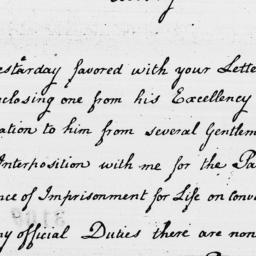 esterday favored with your Lette
closing one from his Excellency
ation to him from several Gentlem
Interposition with me for the Pa
nce of Imprisonment for Life on conv
ny official Duties there are non